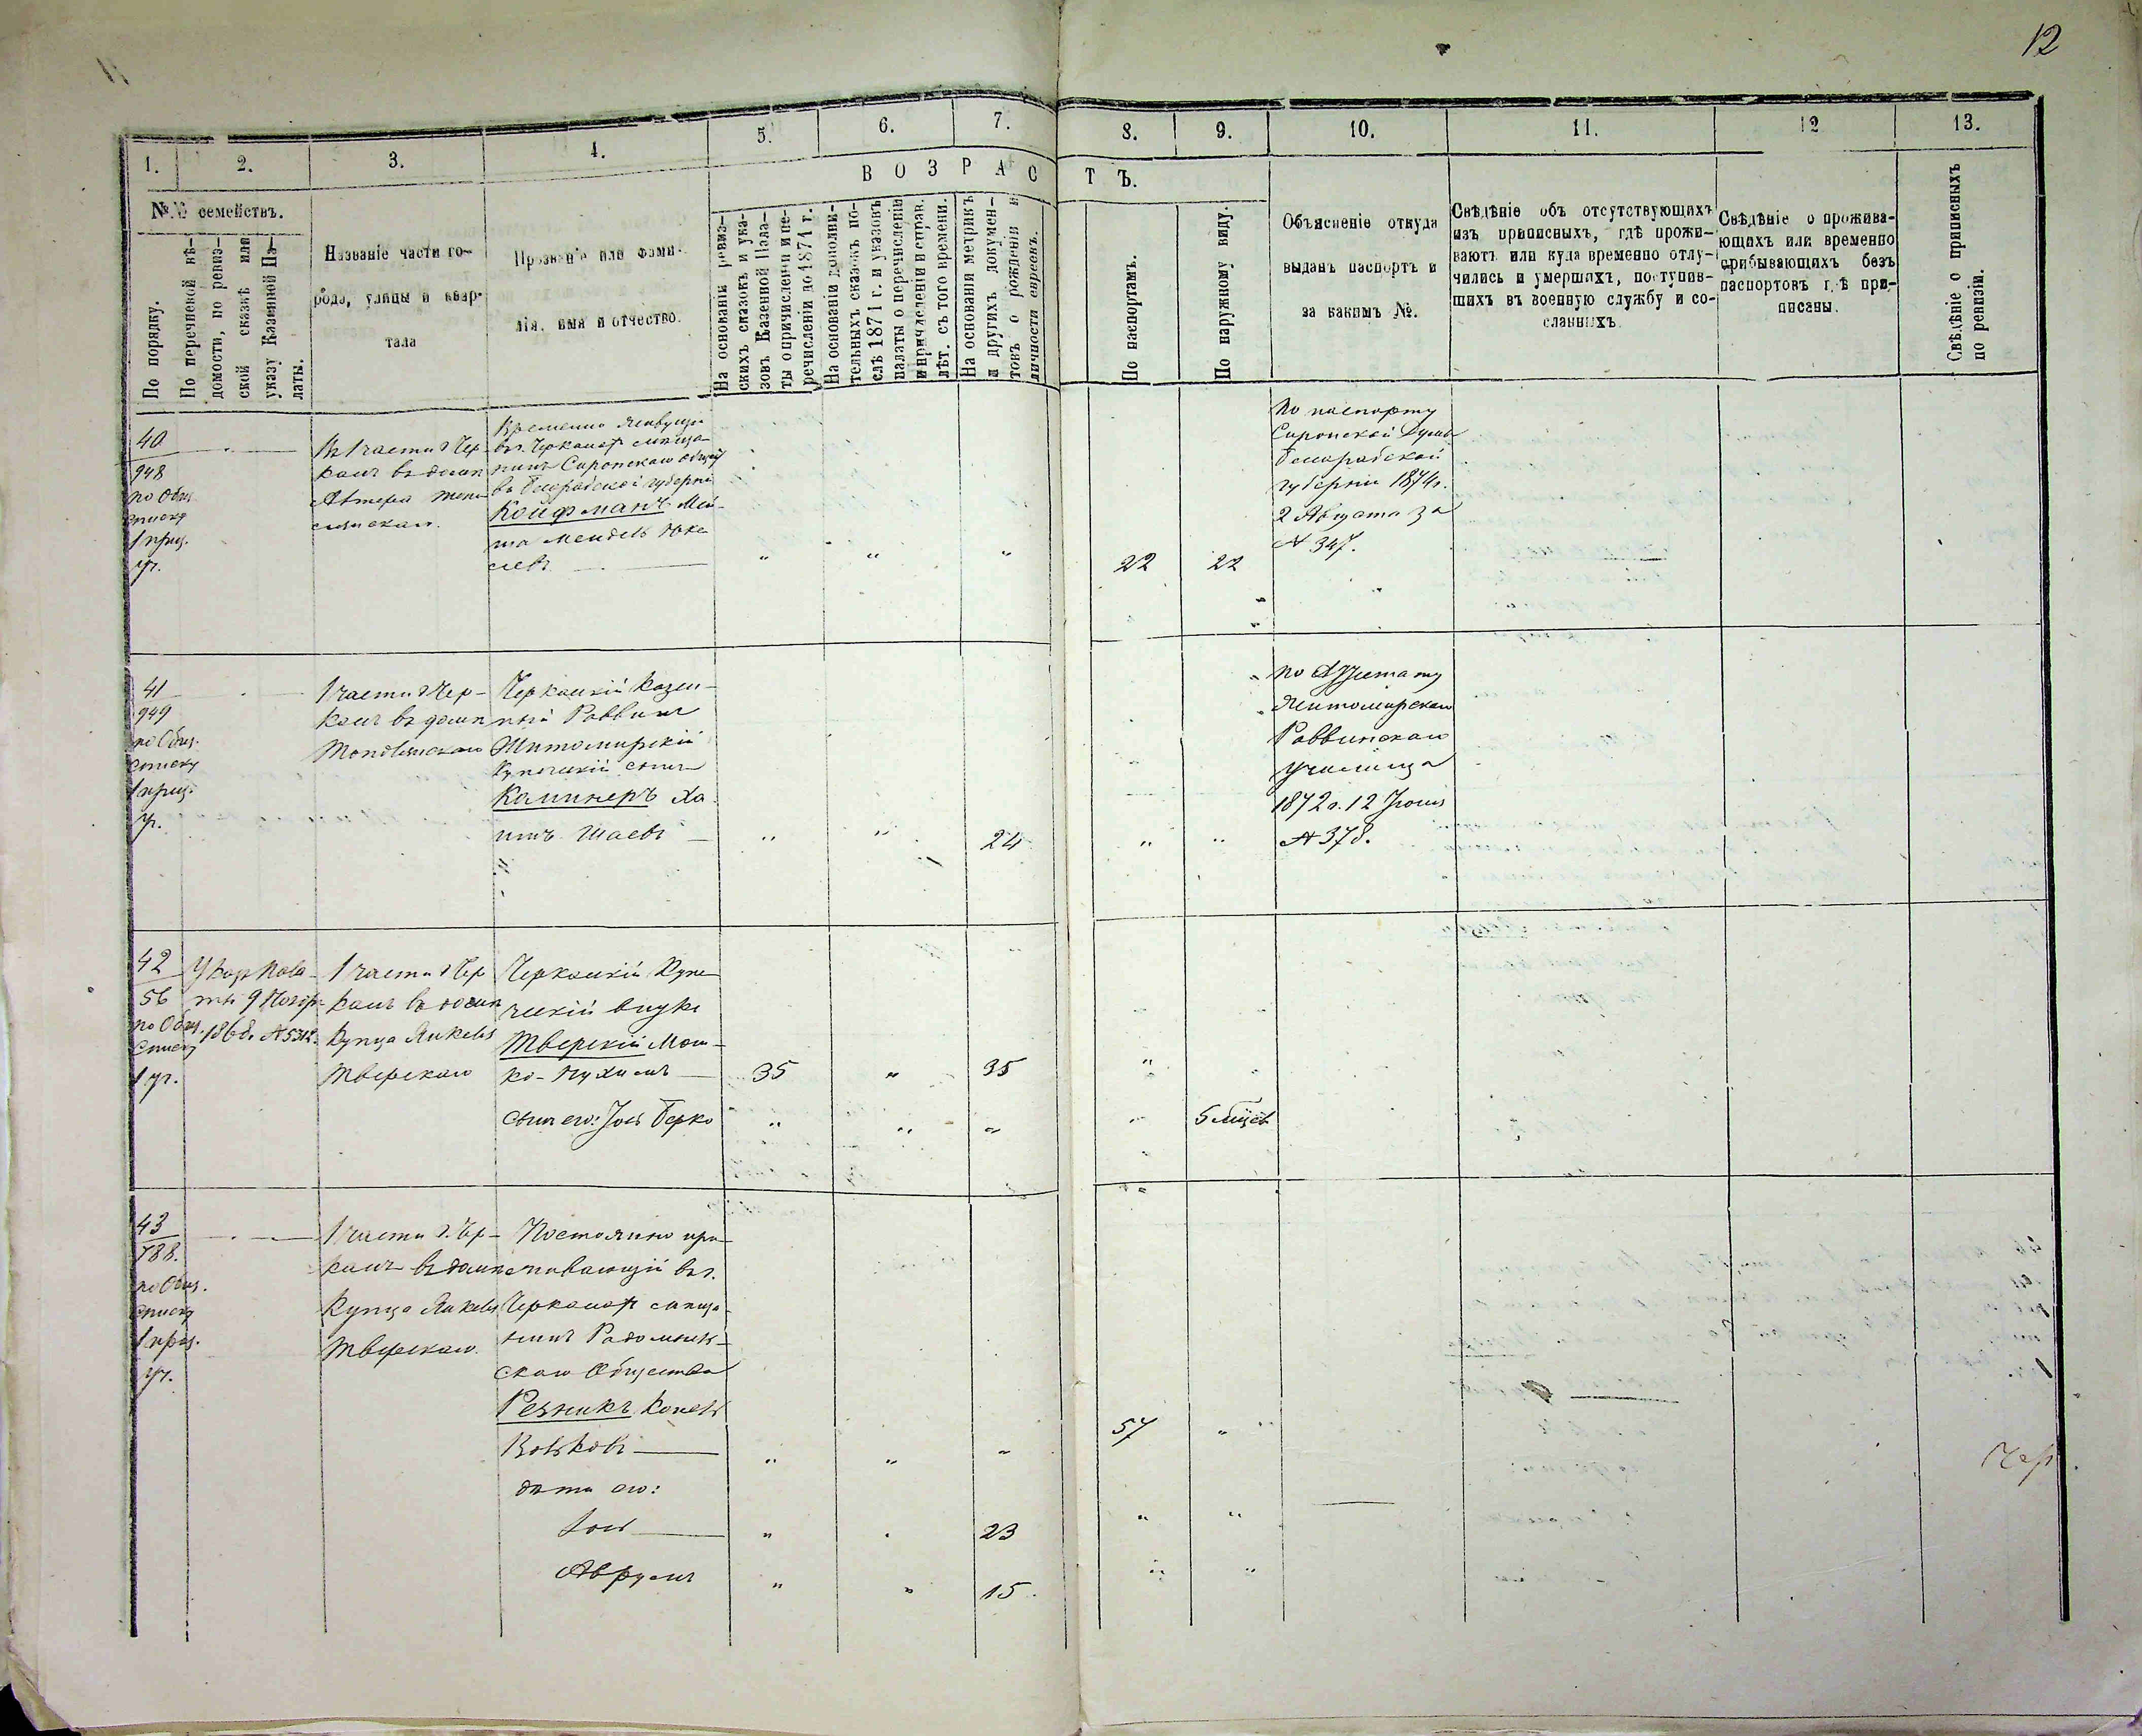 12
1. 2. 3. 4. 5. 6. 7. 8. 9. 10. 11. 12 13.
В О З Р А С Т Ъ.
№№ семействъ.
По порядку.
По перечневой вѣ-
домости, по ревиз-
ской сказкѣ или
указу Казенной Па-
латы.
Названіе части го-
рода, улицы и квар-
тала
Прозваніе или фами-
лія, имя и отчество.
На основаніи ревиз-
скихъ сказокъ и ука-
зовъ Казенной Пала-
ты о причисленіи и пе-
речисленіи до 1871 г.
На основаніи дополни-
тельныхъ сказокъ по-
слѣ 1871 г. и указовъ
палаты о перечисленіи
и причисленіи и справ.
лѣт. съ того времени.
На основаніи метрикъ
и другихъ докумен-
товъ о рожденіи и
личности евреевъ.
По паспортамъ.
По наружному виду.
Объясненіе откуда
выданъ паспортъ и
за какимъ №.
Свѣдѣніе объ отсутствующихъ
изъ приписныхъ, гдѣ прожи-
ваютъ или куда временно отлу-
чились и умершихъ, поступив-
шихъ въ военную службу и со-
сланныхъ
Свѣдѣніе о прожива-
ющихъ или временно
прибывающихъ безъ
паспортовъ гдѣ при-
писаны.
Свѣдѣніе о приписныхъ
по ревизіи.
40
948
по Общ.
списку
1 приз.
уч.
Въ 1 части г. Чер-
касъ въ домѣ
Временно живущій
въ г. Черкасахъ мѣща-
нинъ Сорокскаго общ.
въ Бессарабской губерніи
Койфманъ
Мендель
" " " 22 22
По паспорту
Сорокской Думы
Бессарабской
губерніи 1874 г.
2 Августа за
№ 347.
41
949
по Общ.
списку
1 приз.
уч.
1 части г. Чер-
касъ въ домѣ
Черкаскій Казен-
ный Раввинъ
Житомирскій
Купеческій сынъ
Калинеръ Ха-
имъ Шаевъ
" " 24 " "
по Аттестату
Житомирскаго
Раввинскаго
училища
1872 г. 12 Іюня
№ 378.
42
56
по Общ.
списку
1 уч.
Указ Пала-
ты 9 Ноябр.
186
1 части г. Чер-
касъ въ домѣ
Купца Янкеля
Тверскаго
Черкаскій Купе-
ческій внукъ
Тверскій Мош-
ко-Нухимъ
35 " 35 "
сынъ его: Іось Берко
" " " " 5 мѣсяц
43
788.
по Общ.
списку
1 приз.
уч.
1 части г. Чер-
касъ въ домѣ
Купца Янкеля
Тверскаго.
Постоянно про-
живающій въ г.
Черкасахъ мѣща-
нинъ Радомысль-
скаго Общества
Резникъ
Вольковъ
" " " 57 "
дѣти его:
Іось
" 23 " "
Аврумъ
" " 15 " "
Чер